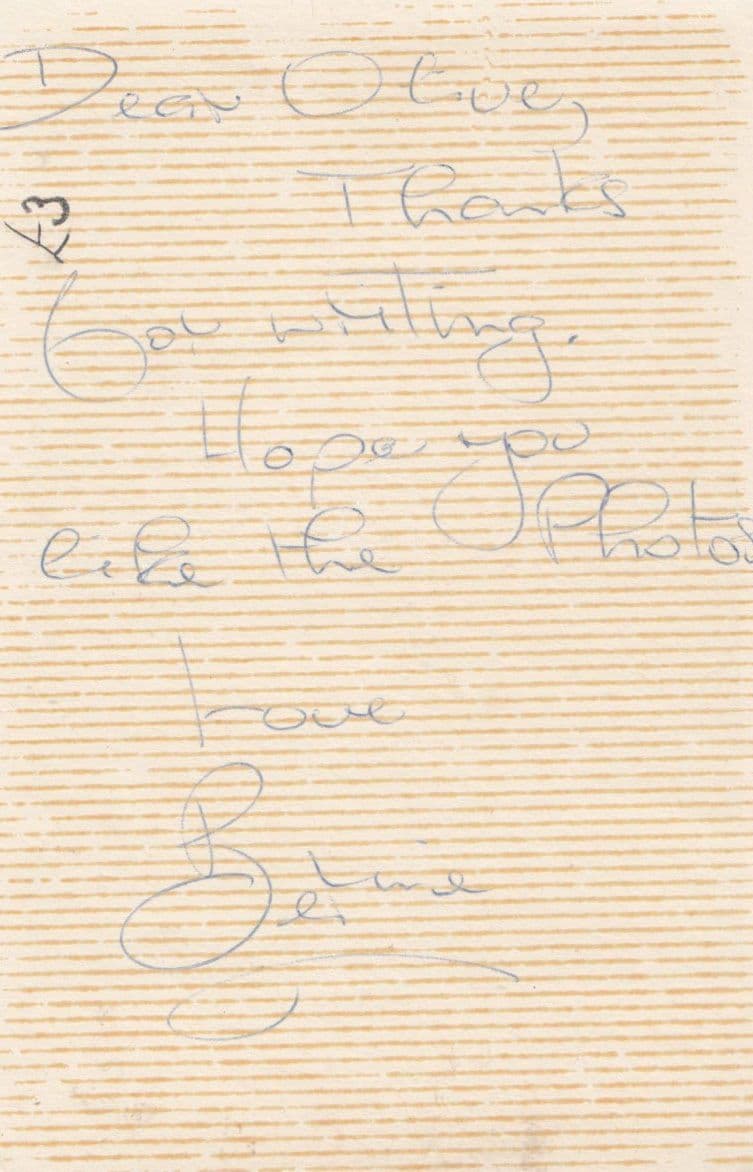 Dear Olive,
Thanks
for writing.
Hope you
like the Photos
Love